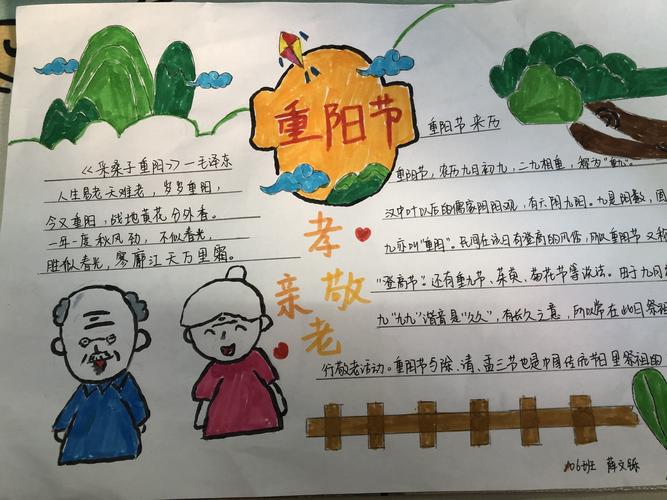 重阳节
《采桑子重阳》一毛泽东
人生易老天难老，岁岁重阳，
今又重阳，战地黄花分外香。
一年一度秋风劲，不似春光，
胜似春光，寥廓江天万里霜。
孝
亲
敬
老
重阳节来历
重阳节，农历九月初九，二九相重，称为"重九"。
汉中叶以后的儒家阴阳观，有六阴九阳。九是阳数，固
九亦叫"重阳"。民间在该日有登高的风俗，所以重阳节又称
"登高节"。还有重九节、茱萸、菊花节等说法。由于九月初
九"九九"谐音是"久久"，有长久之意，所以常在此日祭祖
行敬老活动。重阳节与除、清、盂三节也是中国传统节日里祭祖的
06班 薛文铄